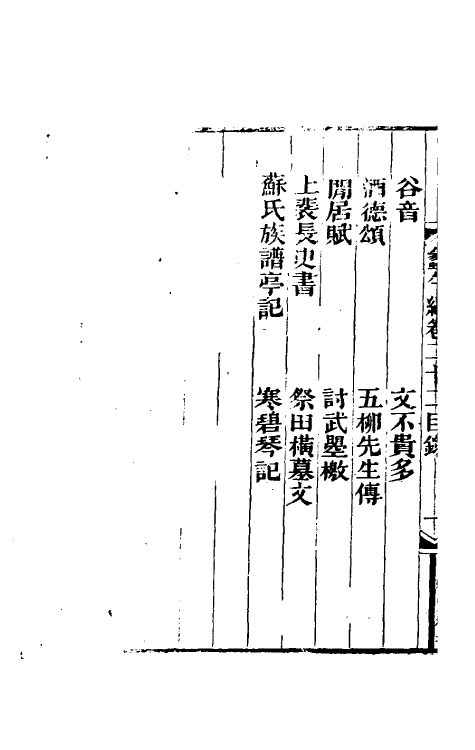 谷音　文不貴多
酒德頌　五柳先生傳
閒居賦　討武曌檄
上裴長史書　祭田橫墓文
蘇氏族譜亭記　寒碧琴記